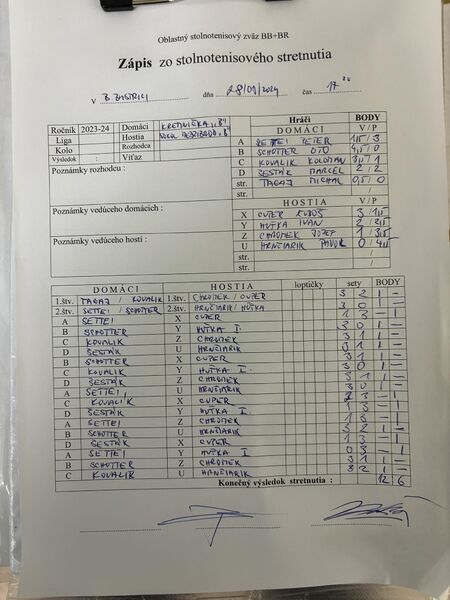 Oblastný stolnotenisový zväz BB+BR
Zápis zo stolnotenisového stretnutia
v B. BYSTRICI dňa 28/01/2024 čas 17
Ročník 2023-24 Domáci KREMNIČKA "B"
Liga Hostia
Kolo Rozhodca
Výsledok : Víťaz
Poznámky rozhodcu :
Poznámky vedúceho domácich :
Poznámky vedúceho hostí :
Hráči BODY
DOMÁCI V / P
A SETTEI PETER
B SCHOTTER OTO
C KOVALIK KOLOMAN
D ŠESTÁK MARCEL 2 / 2
str. TAGAJ MICHAL 0,5 / 0
str. /
HOSTIA V / P
X CUPER ĽUBOŠ 3 / 1,5
Y HUTKA IVAN
Z CHROMEK JOZEF 1 / 3,5
U HRNČIARIK PAVOL 0 / 4,5
str. /
str. /
DOMÁCI HOSTIA loptičky sety BODY
1.štv. TAGAJ / KOVALIK 1.štv. CHROMEK / CUPER 3 2 1 –
2.štv. SETTEI / SCHOTTER 2.štv. HRNČIARIK / HUTKA 3 0 1 –
A SETTEI X CUPER 1 3 – 1
B SCHOTTER Y HUTKA I. 3 0 1 –
C KOVALIK Z CHROMEK 3 1 1 –
D ŠESTÁK U HRNČIARIK 3 1 1 –
B SCHOTTER X CUPER 3 1 1 –
C KOVALIK Y HUTKA I. 3 0 1 –
D ŠESTÁK Z CHROMEK 3 1 1 –
A SETTEI U HRNČIARIK 3 0 1 –
C KOVALIK X CUPER 3 – 1
D ŠESTÁK Y HUTKA I. 1 3 – 1
A SETTEI Z CHROMEK 1 3 – 1
B SCHOTTER U HRNČIARIK 3 2 1 –
D ŠESTÁK X CUPER 1 3 – 1
A SETTEI Y HUTKA I 0 3 – 1
B SCHOTTER Z CHROMEK 3 1 –
C KOVALIK U HRNČIARIK 3 2 1 –
Konečný výsledok stretnutia : 12 6